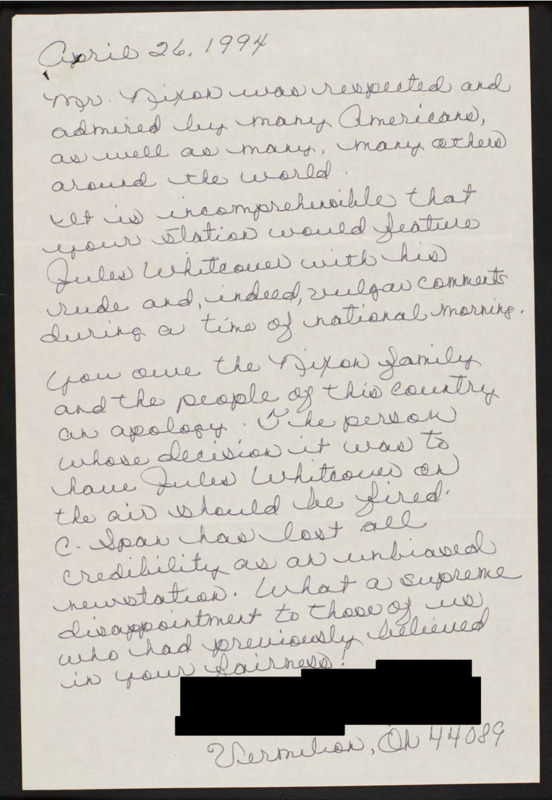 April 26, 1994
Mr. Nixon was respected and
admired by many Americans,
as well as many, many others
around the world.
It is incomprehensible that
your station would feature
Jules Whitcover with his
rude and, indeed, vulgar comments
during a time of national morning.
You owe the Nixon family
and the people of this country
an apology. The person
whose decision it was to
have Jules Whitcover on
the air should be fired.
C. Span has lost all
credibility as an unbiased
newstation. What a supreme
disappointment to those of us
who had previously believed
in your fairness!
Vermilion, Oh 44089